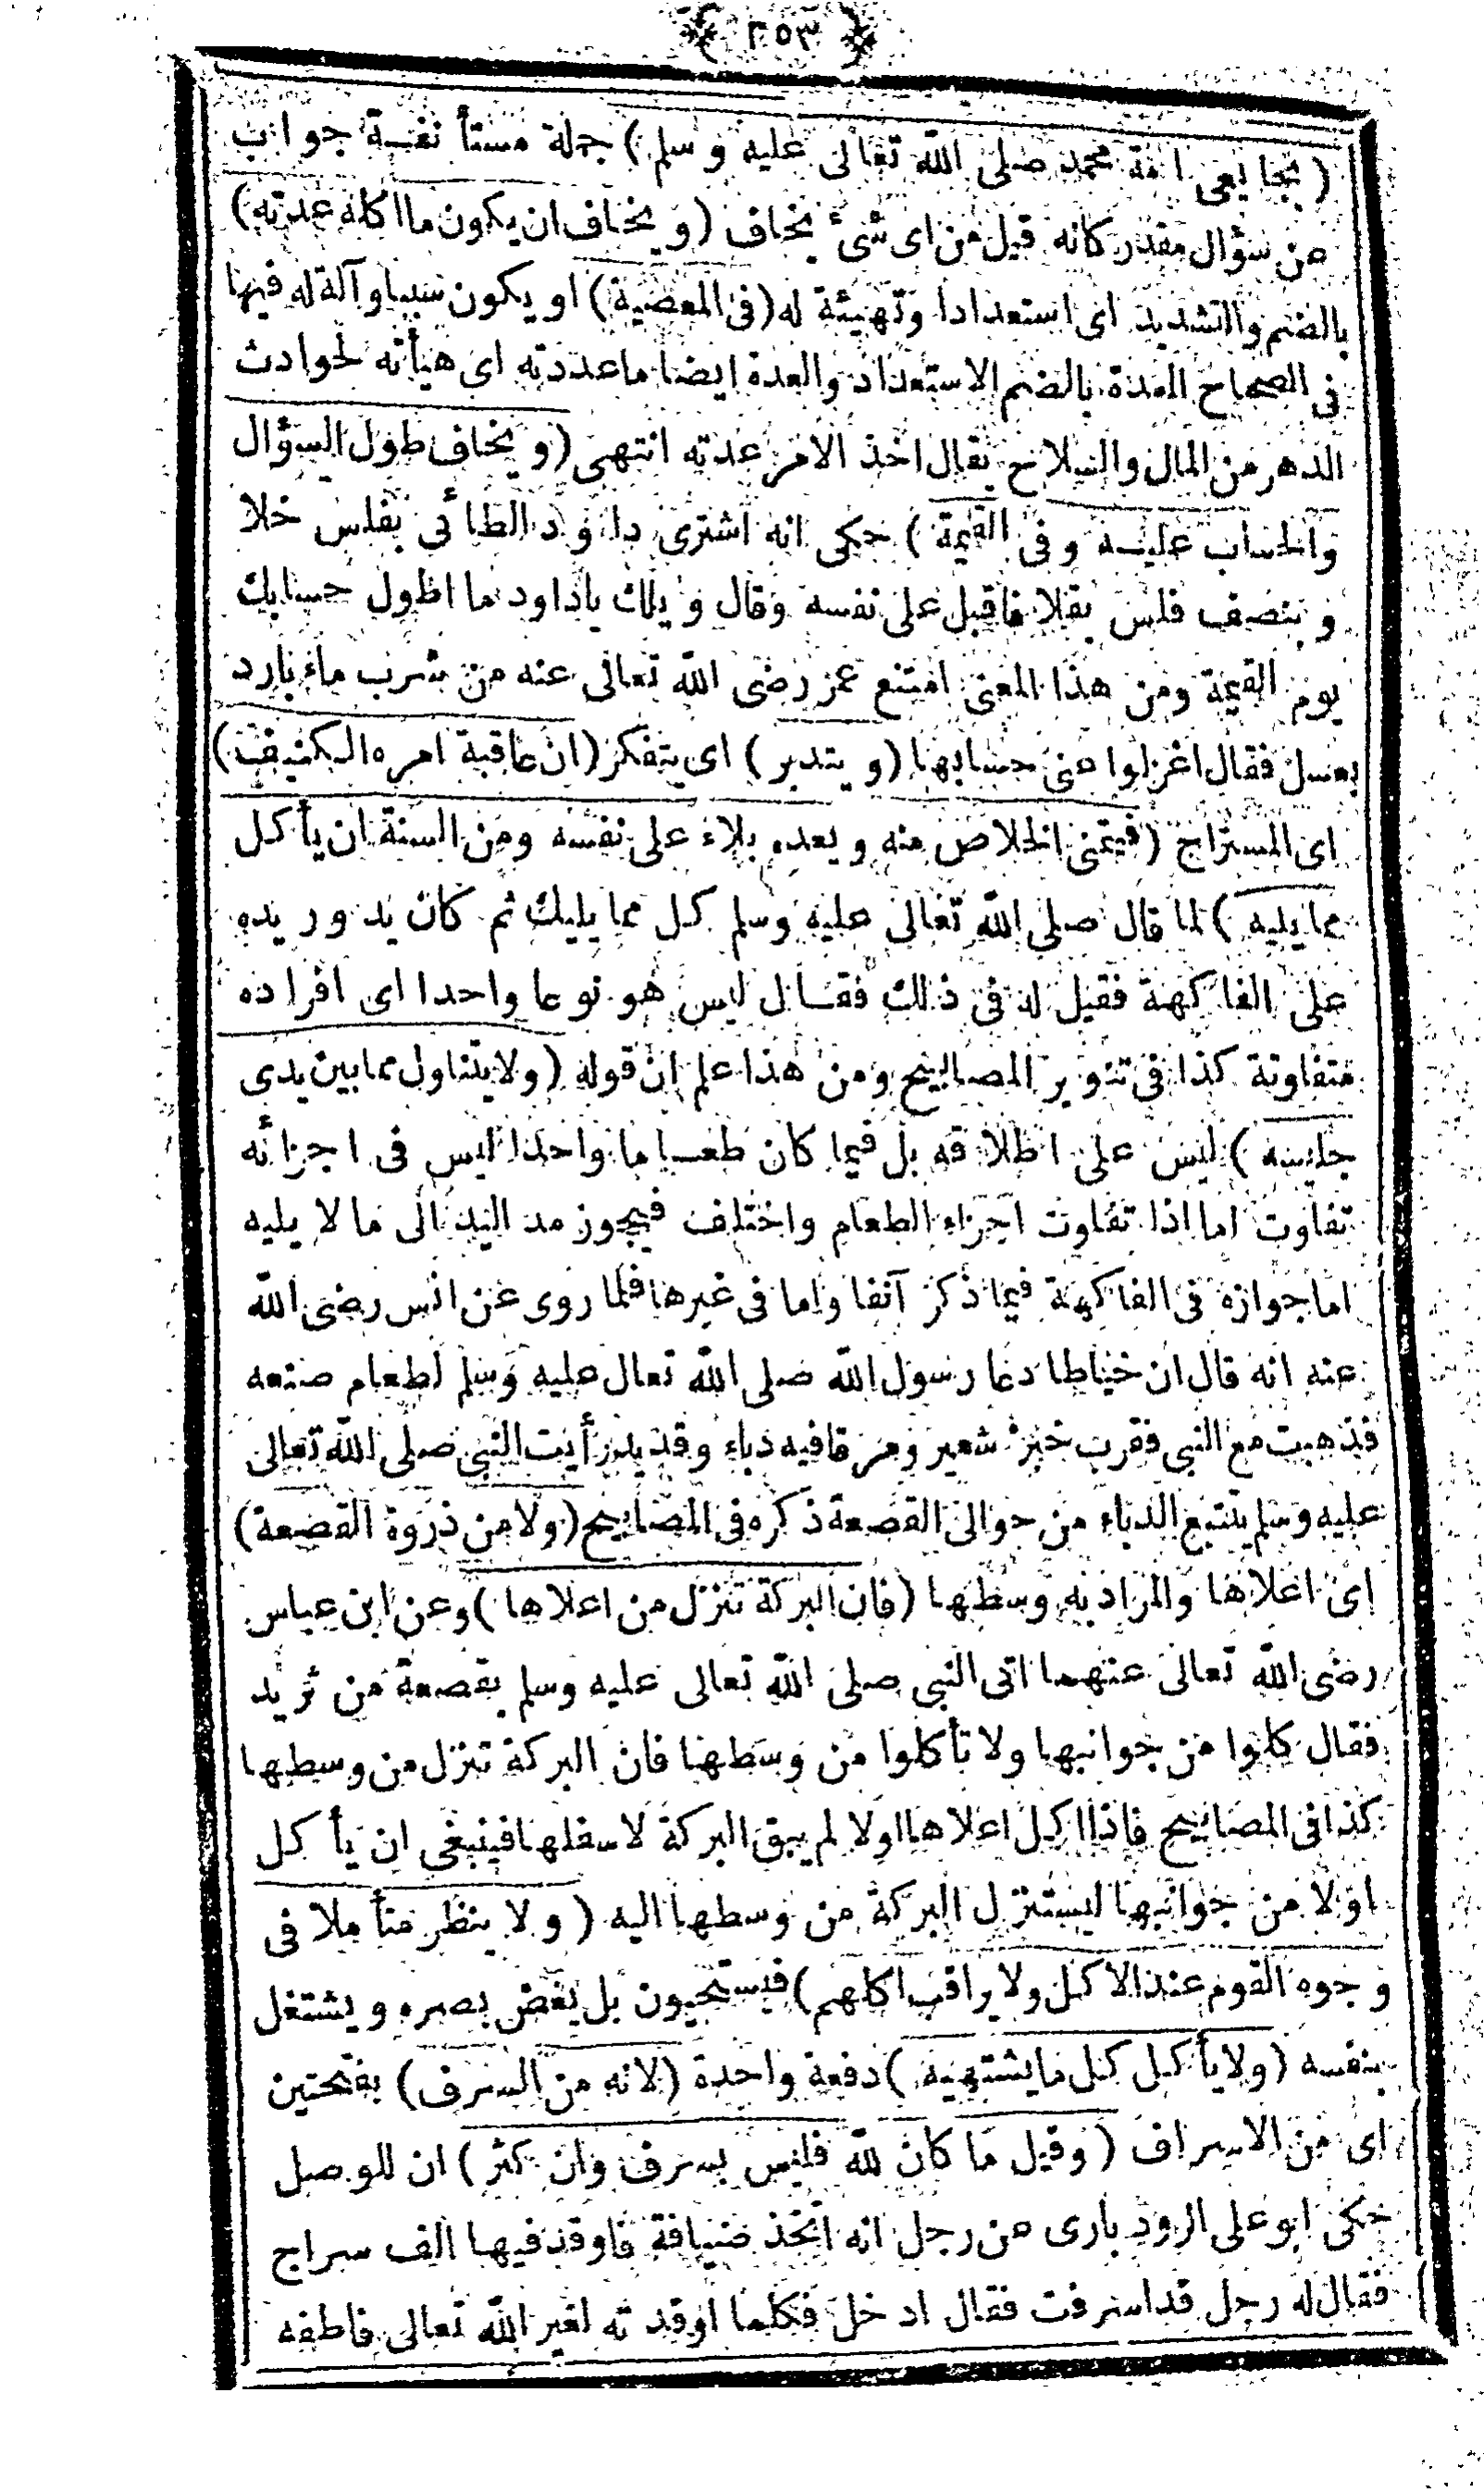 ﴿ ٣٥٣ ﴾
امة محمد صلى الله تعالى عليه وسلم ) جملة مستأ نفسة جواب
عن سؤال مقدر كانه قيل من اى شئ يخاف ( و يخاف ان يكون ما اكله عدته )
بالضم والتشديد اى استعدادا وتهيئة له ( فى المعصية ) او يكون سببا وآلة له فيها
فى الصحاح العدة بالضم الاستعداد والعدة ايضا ماعددته اى هيأته لحوادث
الدهر من المال والسلاح يقال اخذ الامر عدته انتهى ( و يخاف طول السؤال
والحساب عليسه وفى القيمة ) حكى انه اشترى داود الطائى بفلس خلا
و بنصف فلس بقلا فاقبل على نفسه وقال و يلك ياداود ما اطول حسابك
يوم القيمة ومن هذا المعنى امتنع عمر رضى الله تعالى عنه من شرب ماء بارد
بعسل فقال اعزلوا عنى حسابها ( و يتدبر ) اى يتفكر ( ان عاقبة امره الكنيف )
اى المستراح ( فيتمنى الخلاص منه و يعده بلاء على نفسه ومن السنة ان يأكل
مما يليه ) لما قال صلى الله تعالى عليه وسلم كل مما يليك ثم كان يد و ر يده
على الفا كهة فقيل له فى ذلك فقال ليس هو نوعا واحدا اى افراده
متفاوتة كذا فى تنو ير المصابيح ومن هذا علم ان قوله ( ولا يتناول مما بين يدى
جليسه ) ليس على اطلا قه بل فيما كان طعاما واحدا ليس فى اجزائه
تفاوت اما اذا تفاوت اجزاء الطعام واختلف فيجوز مد اليد الى ما لا يليه
اما جوازه فى الفاكهة فيما ذكر آنفا واما فى غيرها فلما روى عن انس رضى الله
عنه انه قال ان خياطا دعا رسول الله صلى الله تعال عليه وسلم لطعام صنعه
فذهبت مع النبى فقرب خبز شعير ومر قا فيه دباء وقديد رأيت النبى صلى الله تعالى
عليه وسلم يتتبع الدباء من حوالى القصعة ذكره فى المصابيح ( ولا من ذروة القصعة )
اى اعلاها والمراد به وسطها ( فان البركة تنزل من اعلاها ) وعن ابن عباس
رضى الله تعالى عنهما اتى النبى صلى الله تعالى عليه وسلم بقصعة من ثريد
فقال كلوا من جوانبها ولا تأكلوا من وسطها فان البركة تنزل من وسطها
كذا فى المصابيح فاذا اكل اعلاها اولا لم يبق البركة لاسفلها فينبغى ان يأ كل
اولا من جوانبها ليستنزل البركة من وسطها اليه ( و لا ينظر متأ ملا فى
وجوه القوم عند الاكل ولا يراقب اكلهم ) فيستحيون بل يغض بصره و يشتغل
بنفسه ( ولا يأكل كل ما يشتهيه ) دفعة واحدة ( لانه من السرف ) بفتحتين
اى من الاسراف ( وقيل ما كان لله فليس بسرف وان كثر ) ان للوصل
حكى ابو على الرود بارى عن رجل انه اتخذ ضيافة فاوقد فيها الف سراج
فقال له رجل قد اسرفت فقال اد خل فكلما اوقد ته لغير الله تعالى فاطفه